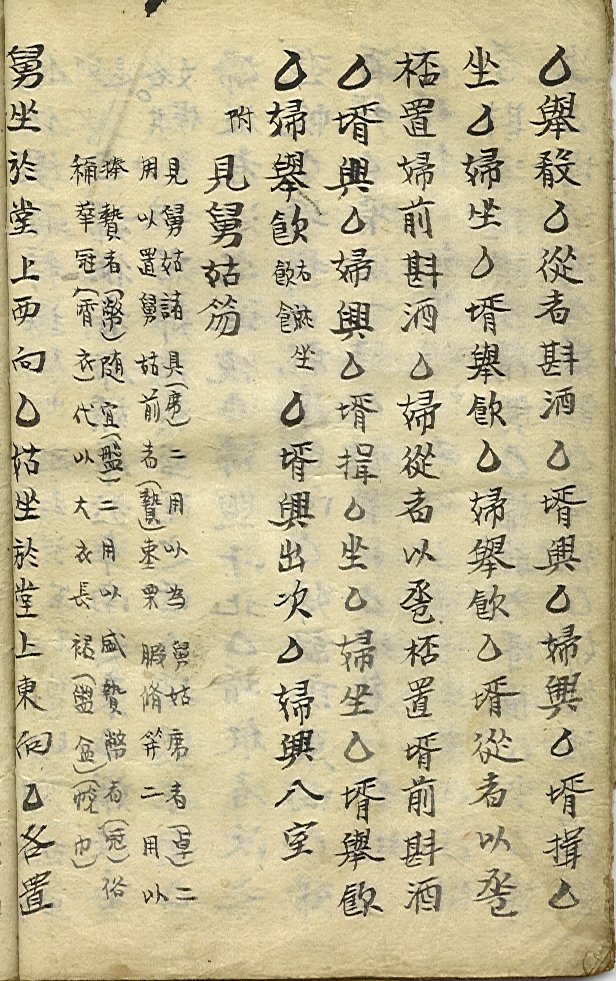 乙舉殽乙從者斟酒乙壻興乙婦興乙壻揖乙
坐乙婦坐乙壻舉飮乙婦舉飮乙壻從者以巹
桮置婦前斟酒乙婦從者以巹桮置壻前斟酒
乙壻興乙婦興乙壻揖乙坐乙婦坐乙壻舉飮
乙婦舉飮
坐乙壻興出次乙婦興入室
附 見舅姑笏
見舅姑諸具(席)二用以為舅姑席者(卓)二
用以置舅姑前者(贄)棗栗腶脩笲二用以
捧贄者(幣)隨宜(盤)二用以盛贄幣者(冠)俗
稱華冠(宵衣)代以大衣長裙(盥盆)(帨巾)
舅坐於堂上西向乙姑坐於堂上東向乙各置